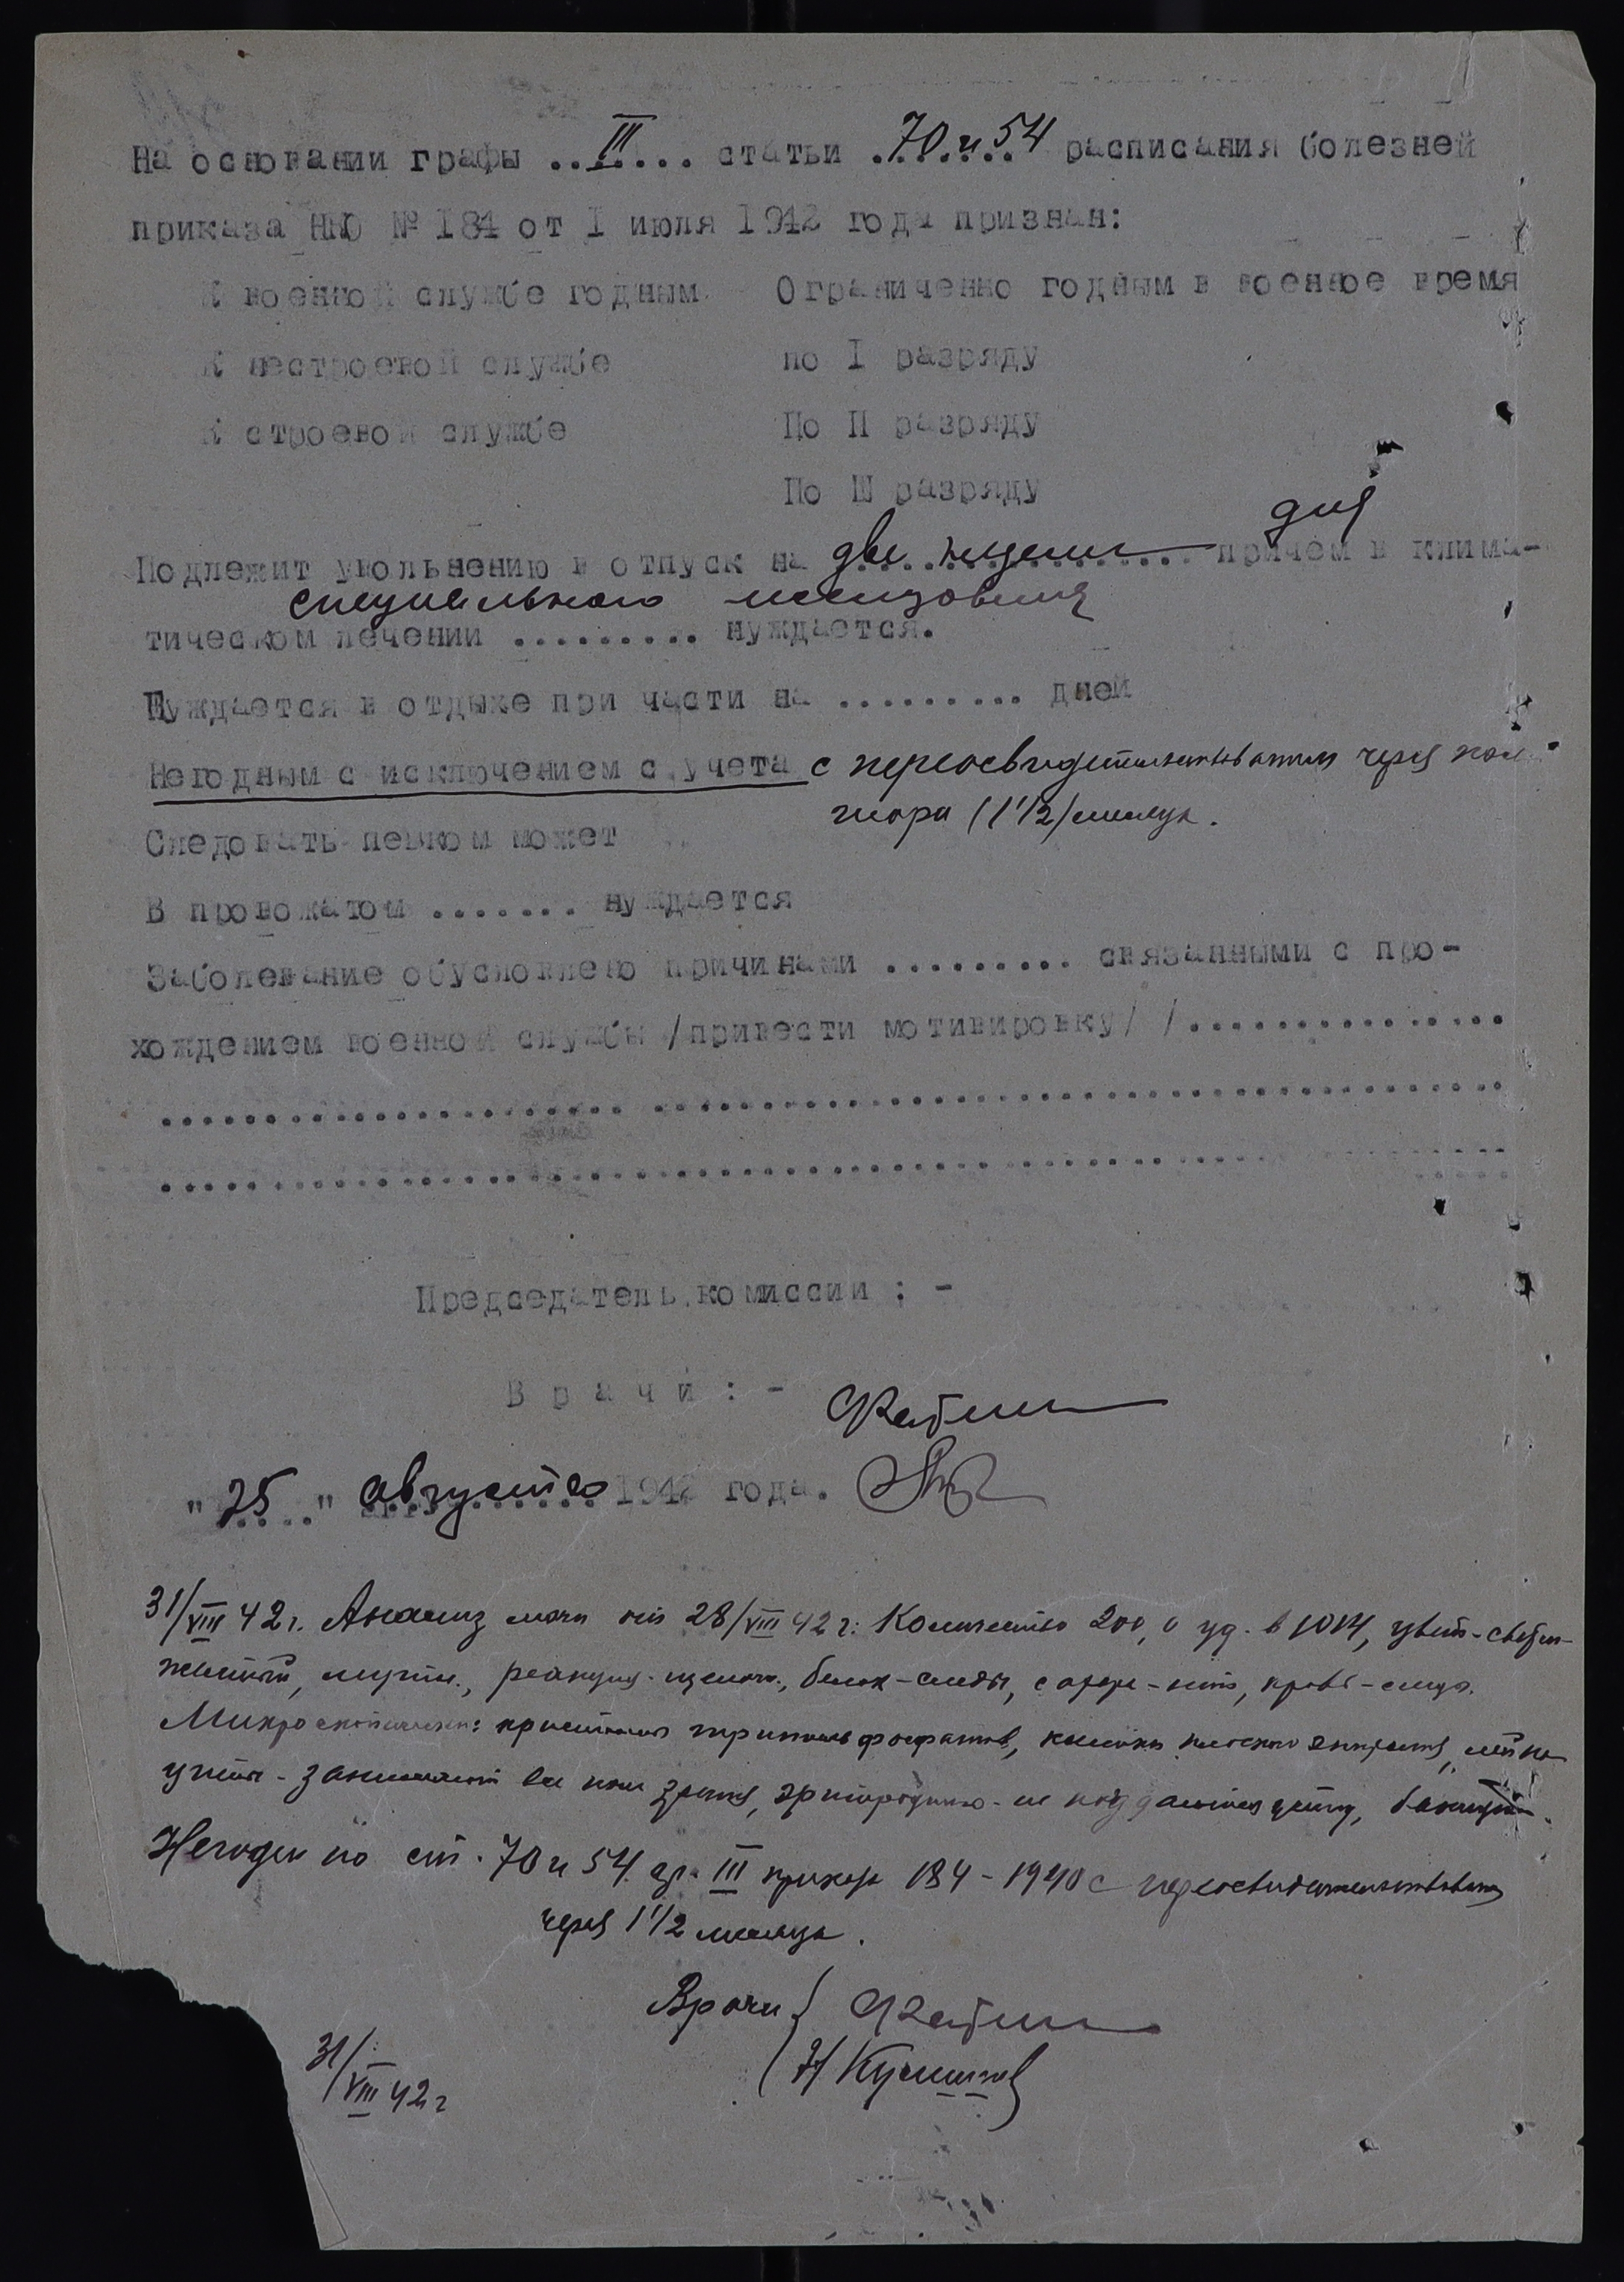 На основании графы ..III.... статьи .70 и 54 расписания болезней
приказа НКО № 184 от I июля 1942 года признан:
К военной службе годным Ограниченно годным в военное время
К нестроевой службе по I разряду
К строевой службе По II разряду
По III разряду
для
Подлежит увольнению в отпуск на две недели причем в клима-
специального исследования
тическом лечении ......... нуждается.
Нуждается в отдыхе при части на .......... дней
Негодным с исключением с учета с переосвидетельствованием через пол
тора (1 1/2) месяца.
Следовать пешком может
В провожатом ....... нуждается
Заболевание обусловлено причинами ......... связанными с про-
хождением военной службы /привести мотивировку/ /................
Председатель комиссии : -
Врачи : -
"25" августа 1942 года.
31/VIII 42 г. Анализ мочи от 28/VIII 42 г: Количество 200,0 уд. в 1014, цвет-светло-
желтый, мутн., реакция-щелочн., белок-следы, сахара-нет, кровь-следы.
Микроскопически: кристаллы трипельфосфатов, клетки плоского эпителия, лейко
циты-занимают все поле зрения, эритроциты-не поддаются счету, бактерии.
Негоден по ст. 70 и 54 гр. III приказа 184-1940 с переосвидетельствованием
через 1 1/2 месяца.
Врачи
31/VIII 42 г